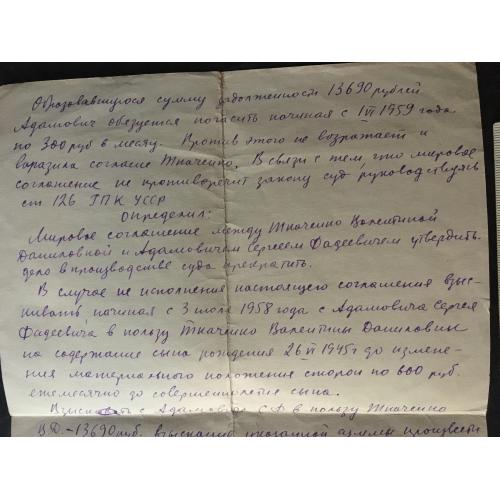 Образовавшуюся сумму задолженности 13690 рублей
Адамович обязуется погасить начиная с 1 VI 1959 года
по 300 руб в месяц. Против этого не возражает и
выразила согласие Ткаченко. В связи с тем, что мировое
соглашение не противоречит закону суд руководствуясь
ст 126 ГПК УССР
определил:
Мировое соглашение между Ткаченко Валентиной
Даниловной и Адамовичем Сергеем Фадеевичем утвердить
дело в производстве суда прекратить.
В случае не исполнения настоящего соглашения взыс-
кивать начиная с 3 июля 1958 года с Адамовича Сергея
Фадеевича в пользу Ткаченко Валентины Даниловны
на содержание сына рождения 26 VI 1945 г до измене-
ния материального положения сторон по 600 руб.
ежемесячно до совершеннолетия сына.
Взыскать с Адамовича С Ф в пользу Ткаченко
В.Д. - 13690 руб. взыскание указанной суммы произвести